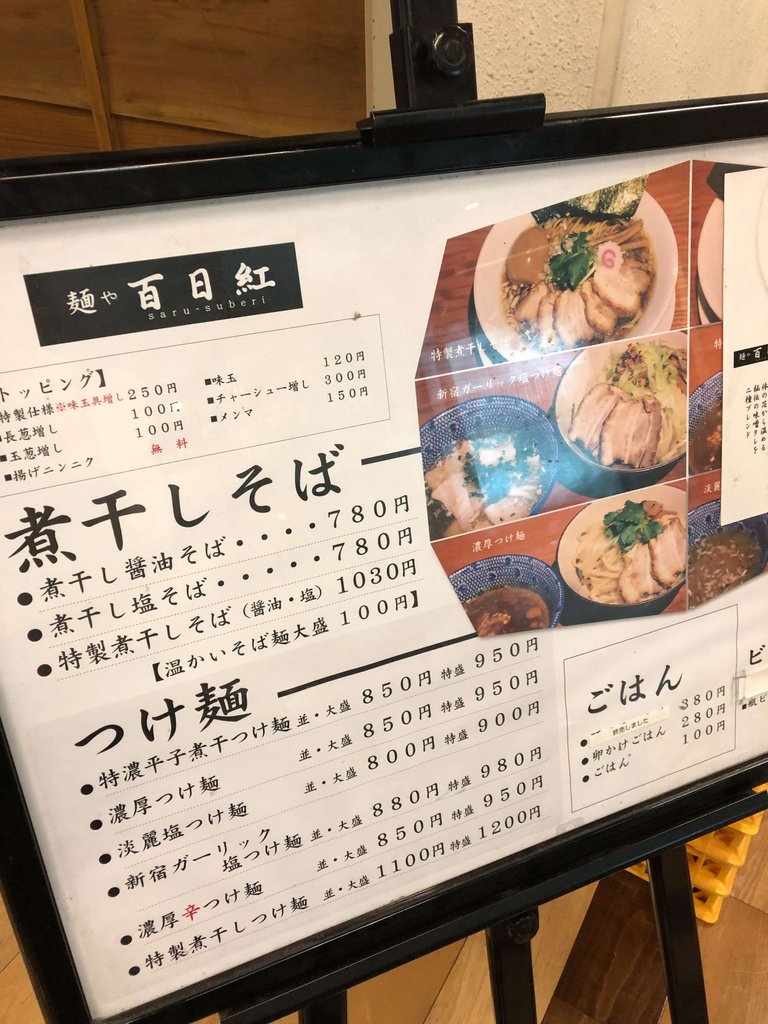 麺や 百日紅
saru-suberi
トッピング】
特製仕様※味玉具増し 250円
長葱増し 100円
■玉葱増し 100円
■揚げニンニク 無料
■味玉 120円
■チャーシュー増し 300円
■メンマ 150円
煮干しそば
●煮干し醤油そば・・・・780円
●煮干し塩そば・・・・・780円
●特製煮干しそば（醤油・塩）1030円
【温かいそば麺大盛 100円】
つけ麺
●特濃平子煮干つけ麺 並・大盛 850円 特盛 950円
●濃厚つけ麺 並・大盛 850円 特盛 950円
淡麗塩つけ麺 並・大盛 800円 特盛 900円
●新宿ガーリック
塩つけ麺 並・大盛 880円 特盛 980円
●濃厚辛つけ麺 並・大盛 850円 特盛 950円
●特製煮干しつけ麺 並・大盛 1100円 特盛 1200円
特製煮干しそ
新宿ガーリック塩つけ麺
濃厚つけ麺
特
淡麗
麺や 百
体の芯から温める
秘伝の味噌タレを
二種ブレンド
ごはん
● 終売しました 380円
●卵かけごはん 280円
●ごはん 100円
ビ
■瓶ビ